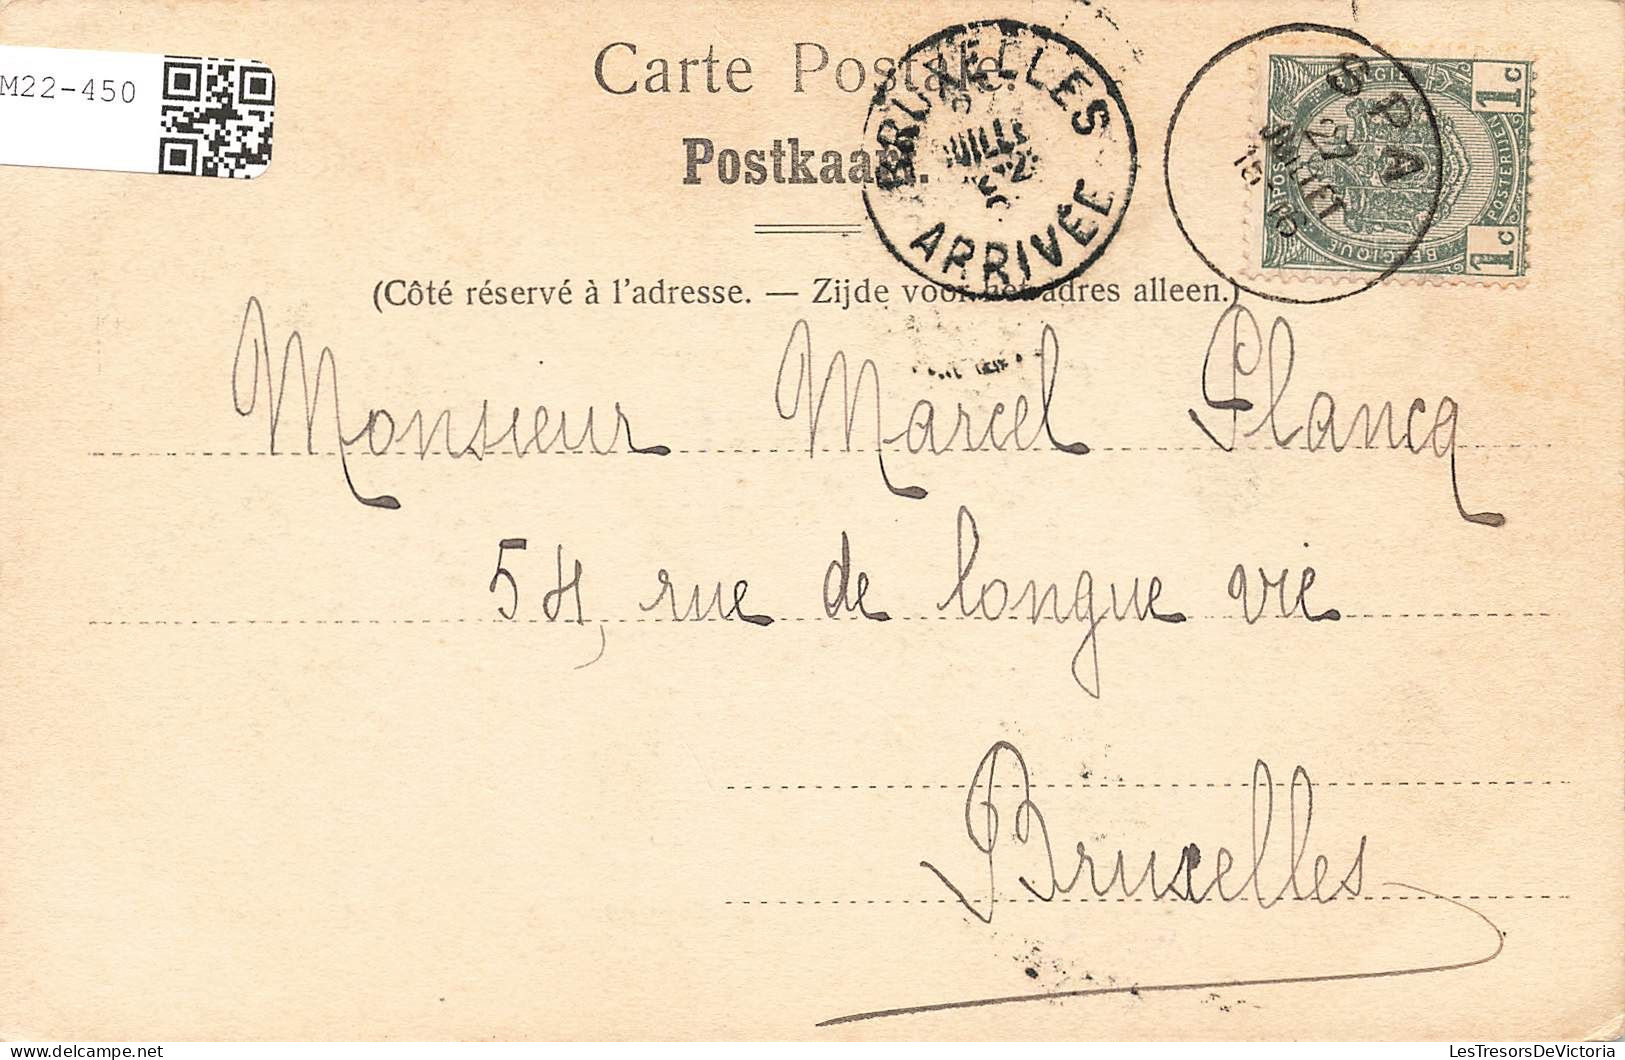 M22-450
Carte Postale.
Postkaart.
BRUXELLES
ARRIVÉE
SPA
27
JUILLET
BELGIQUE
POSTERIJEN
1c
1c
(Côté réservé à l'adresse. — Zijde voor het adres alleen.)
Monsieur Marcel Plancq
54, rue de longue vie
Bruxelles
LesTresorsDeVictoria